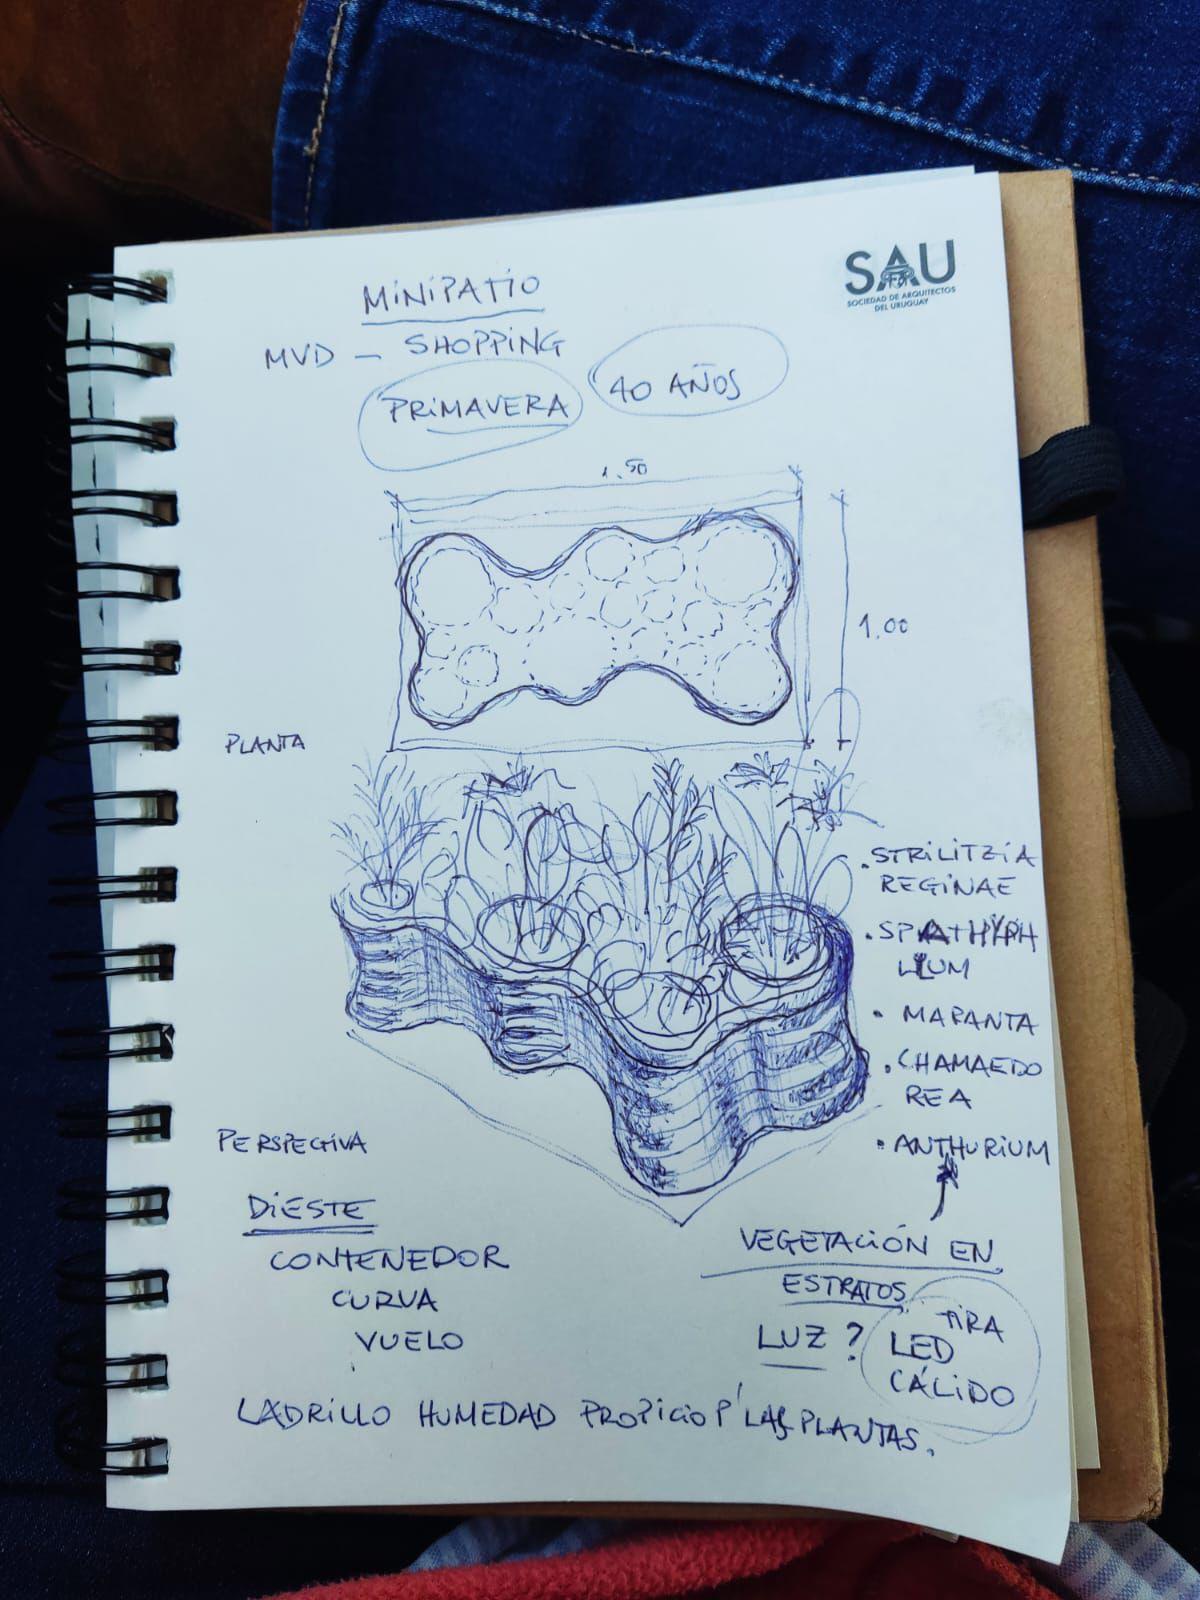 SAU
SOCIEDAD DE ARQUITECTOS
DEL URUGUAY
MINIPATIO
MVD - SHOPPING
PRIMAVERA
40 AÑOS
1.50
1.00
PLANTA
. STRILITZIA
REGINAE
. SPATHYPH
LLUM
. MARANTA
. CHAMAEDO
REA
. ANTHURIUM
PERSPECTIVA
DIESTE
CONTENEDOR
CURVA
VUELO
VEGETACIÓN EN
ESTRATOS
LUZ ?
TIRA
LED
CÁLIDO
LADRILLO HUMEDAD PROPICIO P' LAS PLANTAS.